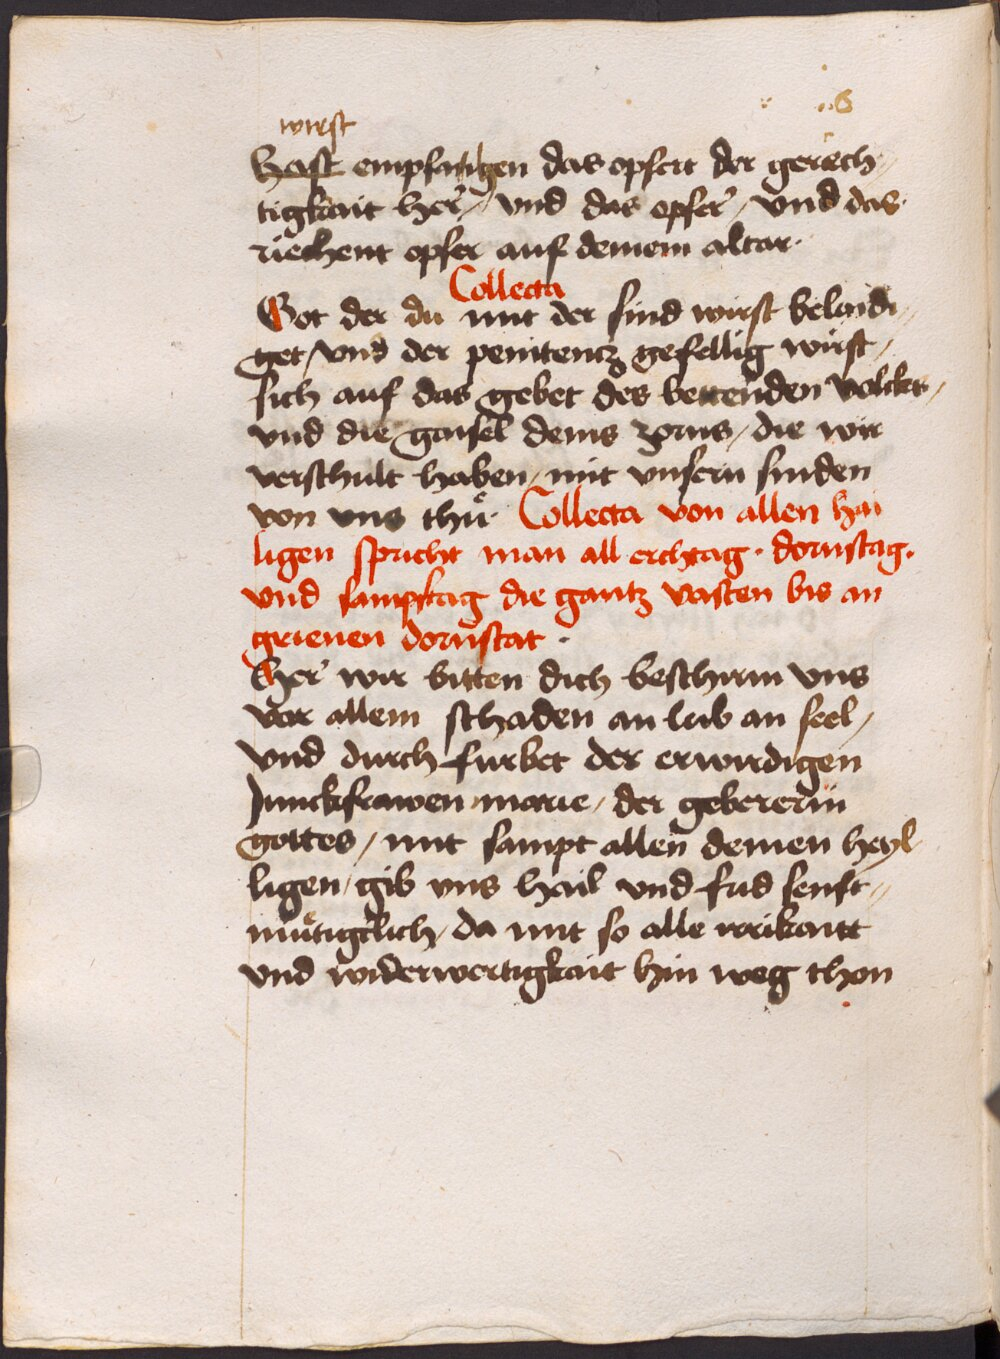 wirst
Hast empfangen das opfert der gerech
tigkait her / und das opfer / und das
riechent opfer auf deinem altar.
Collecta
Got der du mit der sind wirst belaidi
get / und der penitencz gefellig wirst /
sich auf das gebet des bettenden volckes /
und die gaisel deins zorns / die wir
verschult haben / mit unsern sinden
von uns thů. Collecta von allen hai
ligen spricht man all erchtag. dornstag.
und sampstag die gantz vasten bis an
grienen dornstat.
Her wir bitten dich beschirm uns
vor allem schaden an laib an seel /
und durch furbet der erwirdigen
Junckfrawen marie / der gebererin
gottes / mit sampt allen deinen heyl
ligen / gib uns hail und frid senft
můtigclich / da mit so alle irrikaitt
und widerwertigkait hin weg thon